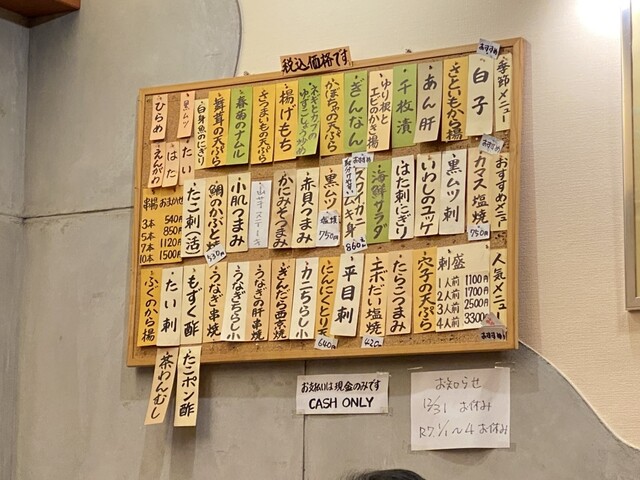 税込価格です。
季節メニュー
おすすめ
白子
さといもから揚
あん肝
千枚漬
ゆり根と
エビのかき揚
ぎんなん
かぼちゃの天ぷら
ネギとカブの
ゆずこしょう炒め
揚げもち
さつまいもの天ぷら
春菊のナムル
舞茸の天ぷら
白身魚のにぎり
黒ムツ
ひらめ
たい
はた
えんがわ
おすすめメニュー
おすすめ
カマス塩焼
750円
黒ムツ刺
いわしのユッケ
はた刺にぎり
海鮮サラダ
おすすめ
ズワイガニムキ身
860円
黒ムツ
塩焼
750円
赤貝つまみ
かにみそつまみ
ステーキ
小肌つまみ
鯛のかぶと焼
530円
たこ刺(活)
串揚 おまかせ
3本 540円
5本 850円
7本 1120円
10本 1500円
人気メニュー
刺盛
1人前 1100円
2人前 1700円
3人前 2500円
4人前 3300円
おすすめ!
穴子の天ぷら
たらこつまみ
エボだい塩焼
420円
平目刺
にんにくとり天
640円
カニちらし小
ぎんだら西京焼
うなぎの肝串焼
うなぎちらし小
うなぎ串焼
もずく酢
たい刺
ふぐのから揚
たこポン酢
茶わんむし
お支払いは現金のみです
CASH ONLY
お知らせ
12/31 お休み
R7 1/1〜4 お休み